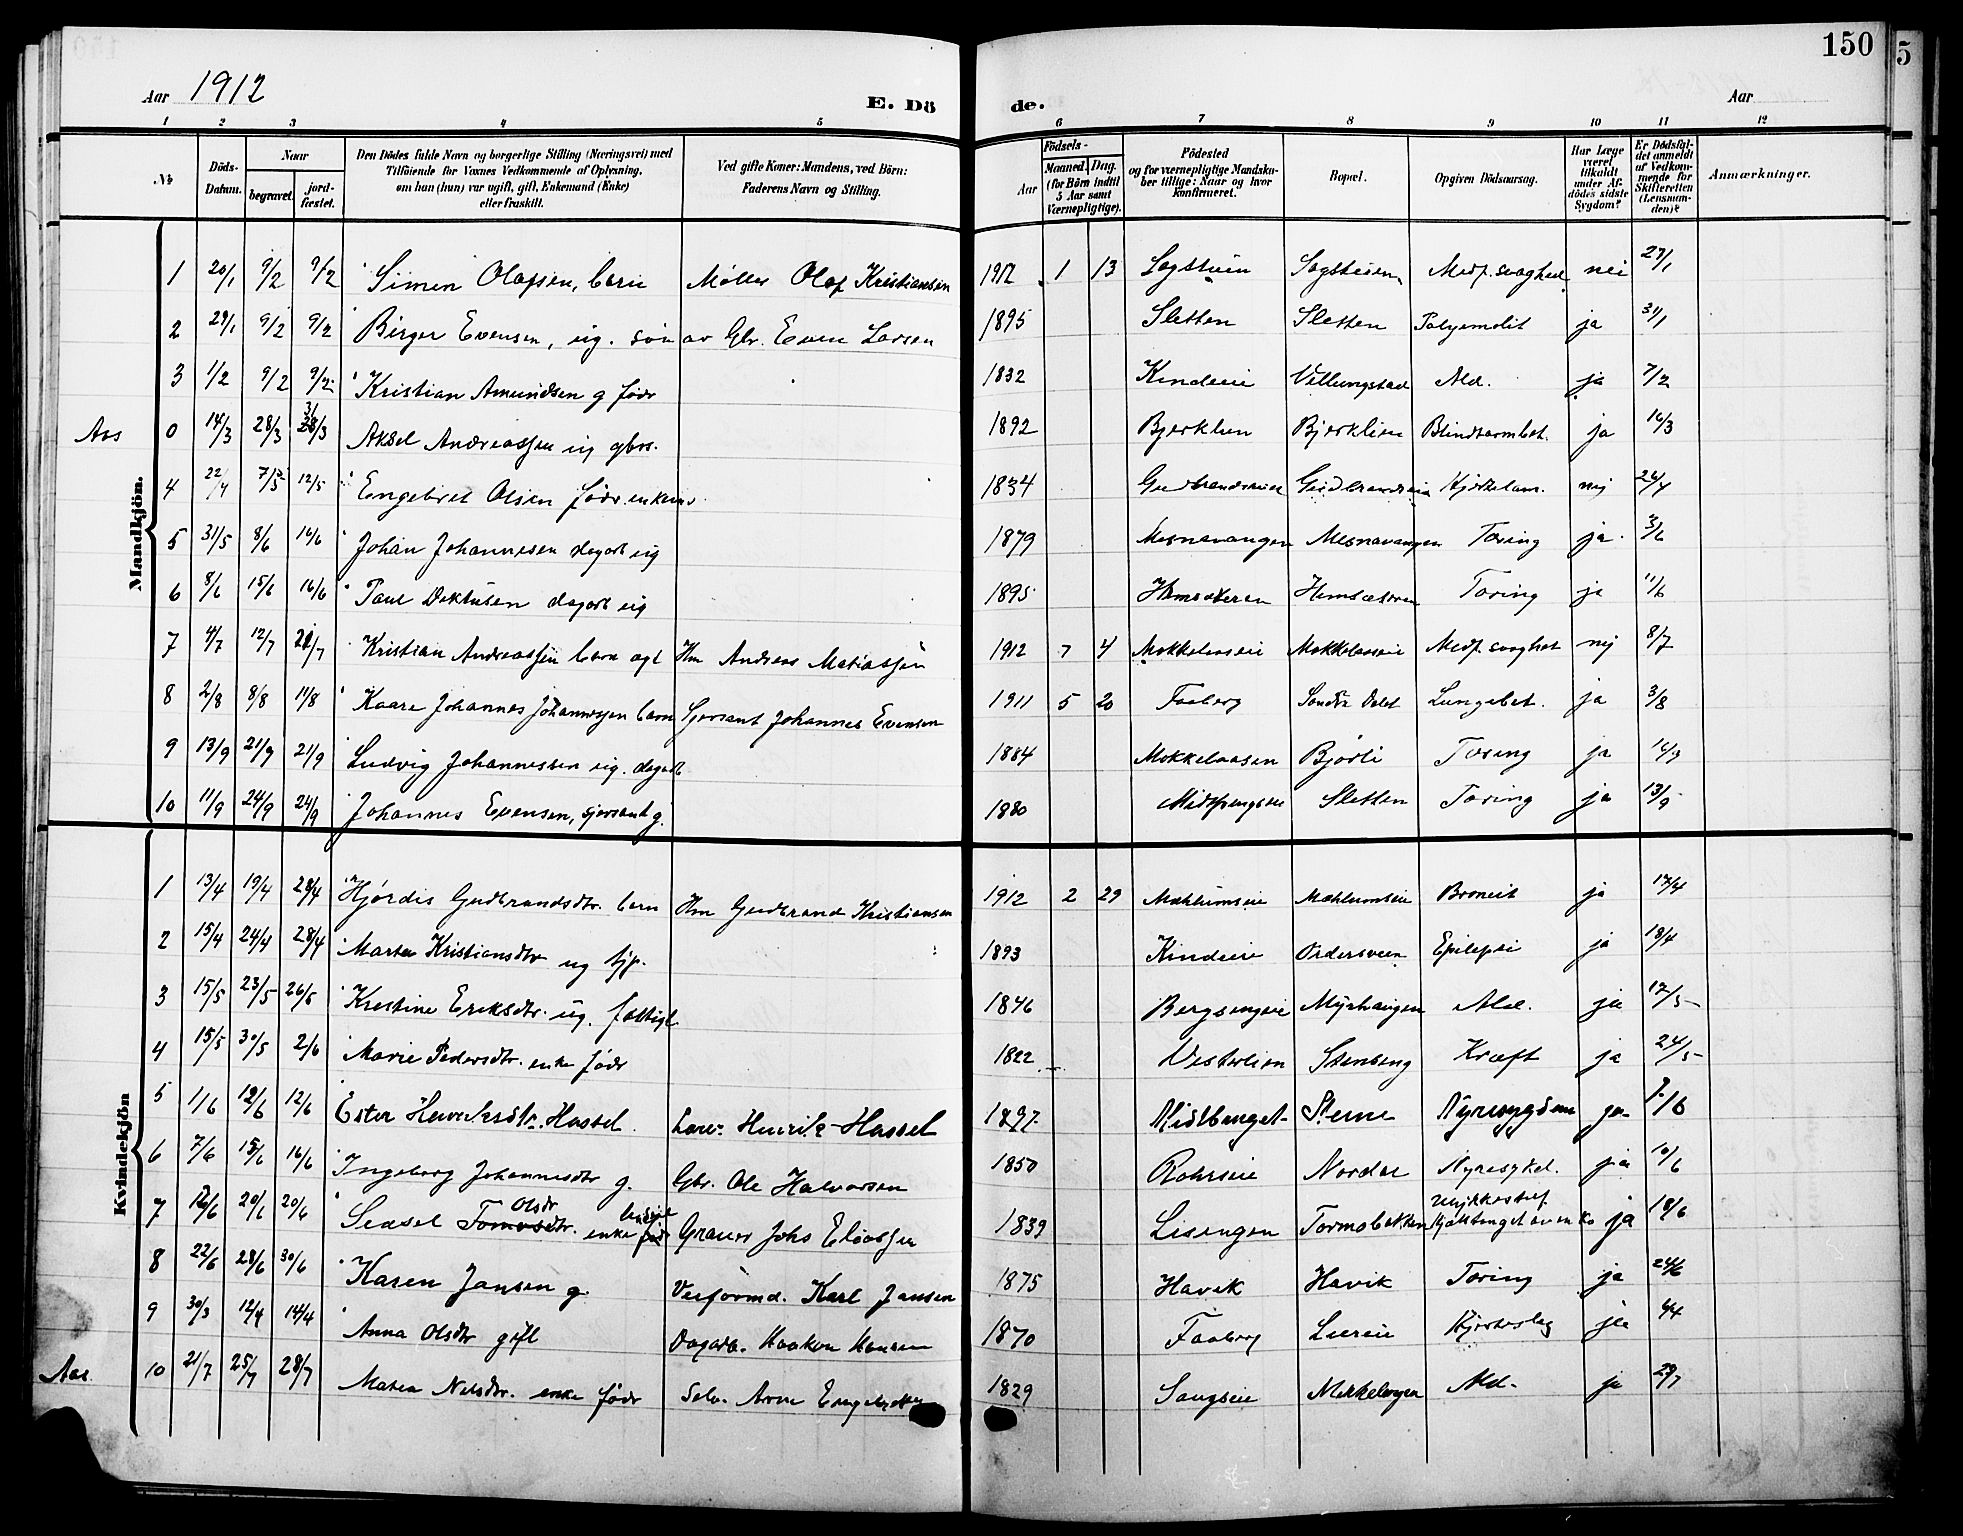 150
5
Aar 1912
E. Dö
de.
Aar
1 2 3 4 5 6 7 8 9 10 11 12
No
Döds-Datum.
Naar
begravet.
jord-fæstet.
Den Dödes fulde Navn og borgerlige Stilling (Næringsvei) med
Tilföiende for Voxnes Vedkommende af Oplysning,
om han (hun) var ugift, gift, Enkemand (Enke)
eller fraskilt.
Ved gifte Koner: Mandens, ved Börn:
Faderens Navn og Stilling.
Födsels-
Aar
Maaned. Dag.
(for Börn indtil
5 Aar samt
Værnepligtige).
Födested
og for værnepligtige Mandska-
ber tillige: Naar og hvor
konfirmeret.
Bopæl.
Opgiven Dödsaarsag.
Har Læge
været
tilkaldt
under Af-
dödes sidste
Sygdom?
Er Dödsfal-
det anmeldt
af Vedkom-
mende for
Skifteretten
(Lensman-
den)?
Anmærkninger.
Mandkjön.
1 20/1 9/2 9/2 Simen Olafsen, barn Møller Olaf Kristiansen 1912 1 13 Sagstuen Sagstuen Medf. svaghed nei 27/1
2 29/1 9/2 9/2 Birger Evensen, ug. søn av Gbr. Even Larsen 1895 Sletten Sletten ja 31/1
3 1/2 9/2 9/2 Kristian Amundsen g födr 1832 Kindeie Vellungstad Ald. ja 7/2
Aas 0 14/3 28/3 31/3 Aksel Andreassen ug gbrs. 1892 Bjørklien Bjørklien Blindtarmbet. ja 16/3
4 22/4 7/5 12/5 Engebret Olsen födr. enkem. 1834 Gudbrandseie nej 26/4
5 31/5 8/6 16/6 Johan Johannesen dagarb ug 1879 Mesnavangen Mesnavangen Tæring ja 3/6
6 8/6 15/6 16/6 Paul dagarb ug 1895 Tæring ja 11/6
7 4/7 12/7 21/7 Kristian Andreassen barn agt Hm Andreas Matiassen 1912 7 4 Mokkelaaseie Mokkelaaseie Medf. svaghet nej 8/7
8 2/8 8/8 11/8 Kaare Johannes Johannessen barn Sjersant Johannes Evensen 1911 5 20 Faaberg Søndre Dalst Lungebet. ja 3/8
9 13/9 21/9 21/9 Ludvig Johannessen ug. dagarb 1884 Mokkelaasen Bjørli Tæring ja 16/9
10 11/9 24/9 24/9 Johannes Evensen, sjersant g. 1880 Sletten Tæring ja 13/9
Kvindekjön
1 13/4 19/4 28/4 Hjørdis Gudbrandsdtr. barn Hm Gudbrand Kristiansen 1912 2 29 Mæhlumseie Mæhlumseie Bronkit ja 17/4
2 15/4 24/4 28/4 Marte Kristiansdtr ug tjp. 1893 Kindeie Epilepsi ja 18/4
3 15/5 23/5 26/5 Kristine Eriksdtr. ug. fattigl. 1846 Bergsengeie Myrhaugen Ald. ja 17/5
4 15/5 30/5 2/6 Marie Pedersdtr. enke födr 1822 Vesterlien Stenseng Kræft ja 24/5
5 1/6 12/6 12/6 Ester Henriksdtr. Hassel. Lærer Henrik Hassel 1897 Midtbønget Nyresygdom ja /6
6 7/6 15/6 16/6 Ingeborg Johannesdtr g. Gbr. Ole Halvorsen 1850 Nordre Nyresykd. ja 10/6
7 16/6 20/6 20/6 Seasel Tomasdtr. Olsdtr enke Johs Eliassen 1839 Lisengen Tormobakken ja 18/6
8 22/6 28/6 30/6 Karen Jansen g. Veiformd. Karl Jansen 1875 Havik Havik Tæring ja 24/6
9 30/3 12/4 14/4 Anna Olsdtr gift Dagarb. Haakon Hansen 1870 Faaberg Lureie Hjerteslag ja 4/4
Aas. 10 21/7 25/7 28/7 Maren Nilsdtr. enke födr Selv. Arne 1829 Ald. ja 29/7